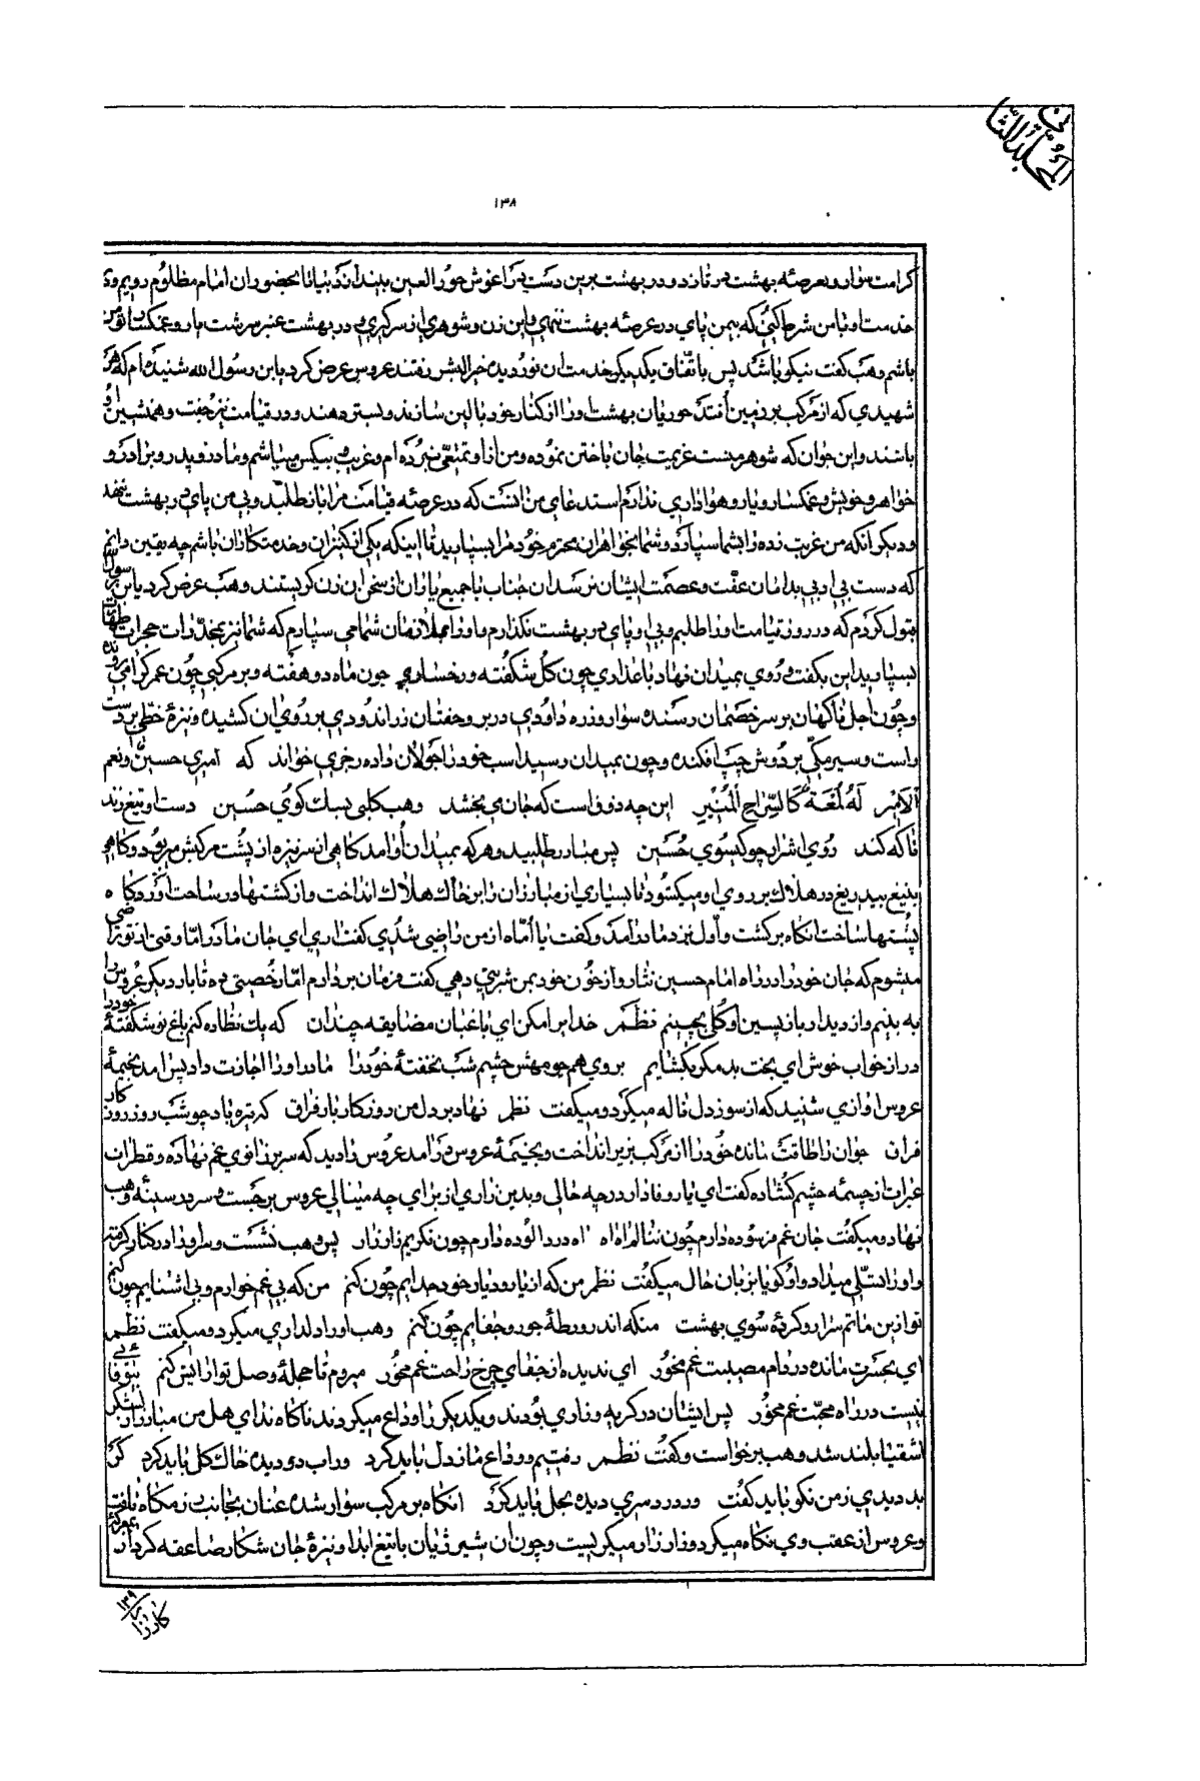 المجلد الثانی
۱۳۸
کرامت سوار و بعرصهٔ بهشت در تازد و در بهشت برین دست در اغوش حور العین بیند اندک بیا تا بحضور ان امام مظلوم رویم و در
خدمت او با من شرط کنی که بیمن پای در عرصه بهشت ننهی و این زن و شوهری از سر گیری و در بهشت عنبر سرشت یار و غمگسار تو من
باشم وهب گفت نیکو باشد پس باتفاق یکدیگر خدمت ان نور دیده خیر البشر رفتند عروس عرض کرد یابن رسول الله شنیده‌ام که هر
شهیدی که از مرکب بر زمین افتد حوریان بهشت او را از کنار خود بالین سازند و بستر دهند و در قیامت نیز جفت و همنشین او
باشند و این جوان که شوهر منست عزیمت جان باختن نموده و من از او تمتعی نبرده ام و غریب و بیکس میباشم و مادر و پدر و برادر و
خواهر و خویش و غمگسار و یار و هواداری ندارم استدعای من انست که در عرصه قیامت مرا باز طلبد و بی من پای در بهشت ننهد
و دیگر انکه من غریب زده را بشما سپارد و شما بخواهران محترم خود مرا بسپارید تا اینکه یکی از کنیزان و خدمتکاران باشم چه یقین دانم
که دست بی ادبی بدامان عفت و عصمت ایشان نرسد ان جناب با جمیع یاران از سخن ان زن گریستند وهب عرض کرد یابن رسول الله
قبول کردم که در روز قیامت او را طلبم و بی او پای در بهشت نگذارم و او را بملازمان شما می سپارم که شما نیز بمخدرات حجرات طهارت
بسپارید این بگفت و روی بمیدان نهاد با عذاری چون گل شکفته و رخساری چون ماه دو هفته و بر مرکبی چون عمر گرامی رونده
و چون اجل ناگهان بر سر خصمان رسنده سوار و زره داودی در بر و خفتان زراندودی بر روی ان کشیده و نیزهٔ خطی بر دست
راست و سپر مکی بر دوش چپ افکنده و چون بمیدان رسید اسب خود را جولان داده رجزی خواند که امیری حسین و نعم
الامیر له لمعة کالسراج المنیر این چه ذوق است که جان می بخشد وهب کلبی بسگ کوی حسین دست او تیغ زند
تا که کند روی اشرار چو گیسوی حسین پس مبارز طلبید و هر که بمیدان او امد گاهی از سر نیزه از پشت مرکبش میربود و گاهی
بتیغ بیدریغ در هلاک بر روی او میگشود تا بسیاری از مبارزان را بر خاک هلاک انداخت و از کشتها در ساحت اوردگاه
پشتها ساخت انگاه برگشت و اول نزد مادر آمد و گفت یا اماه از من راضی شدی گفت اری ای جان مادر اما وقتی از تو راضی
میشوم که جان خود را در راه امام حسین نثار و از خون خود بمن شربتی دهی گفت فرمان بردارم اما رخصتی ده تا بار دیگر عروس را
به بینم و از دیدار بازپسین او گلی بچینم نظم خدا را مکن ای باغبان مضایقه چندان که یک نظاره کنم باغ نو شکفتهٔ خود را
در از خواب خوش ای بخت بد مگر بگشایم بروی همچو مهش چشم شب نخفتهٔ خود را مادر او را اجازت داد پس امد بخیمهٔ
عروس اوازی شنید که از سوز دل ناله میکرد و میگفت نظم نهاد بر دل من روزگار بار فراق که تیره باد چو شب روز روزگار
فراق جوان را طاقت نمانده خود را از مرکب بزیر انداخت و بخیمهٔ عروس در آمد عروس را دید که سر بزانوی غم نهاده و قطرات
عبرات از چشمه چشم گشاده گفت ای یار وفادار در چه حالی و بدین زاری از برای چه مینالی عروس برجست و سر در سینهٔ وهب
نهاده میگفت جان غم فرسوده دارم چون ننالم اه اه اه درد الوده دارم چون نگریم زار زار پس وهب نشست و سر او را در کنار گرفته
و او را تسلی میداد و او گویا بزبان حال میگفت نظم من که از یار و دیار خود جدایم چون کنم من که بی غمخوارم و بی اشنایم چون کنم
تو ازین ماتم سرا رو کردهٔ سوی بهشت منکه اندر ورطهٔ جور و جفایم چون کنم وهب او را دلداری میکرد و میگفت نظم
ای بحسرت مانده در دام مصیبت غم مخور ای ندیده از جفای چرخ راحت غم مخور میروم تا حجلهٔ وصل تو ارایش کنم بیوفائی
نیست در راه محبت غم مخور پس ایشان در گریه و زاری بودند و یکدیگر را وداع میکردند ناگاه ندای هل من مبارز از لشگر
اشقیا بلند شد وهب برخواست و گفت نظم رفتیم و وداع ما ز دل باید کرد وز اب دو دیده خاک گل باید کرد گر
بد دیدی ز من نکو باید گفت ور درد سری دیده بحل باید کرد انگاه بر مرکب سوار شده عنان بجانب رزمگاه تافت
و عروس از عقب وی نگاه میکرد و زار زار میگریست و چون ان شیر ژیان با تیغ ابدار و نیزهٔ جان شکار صاعقه کردار بمعرکهٔ
۱۳۹
کارزار